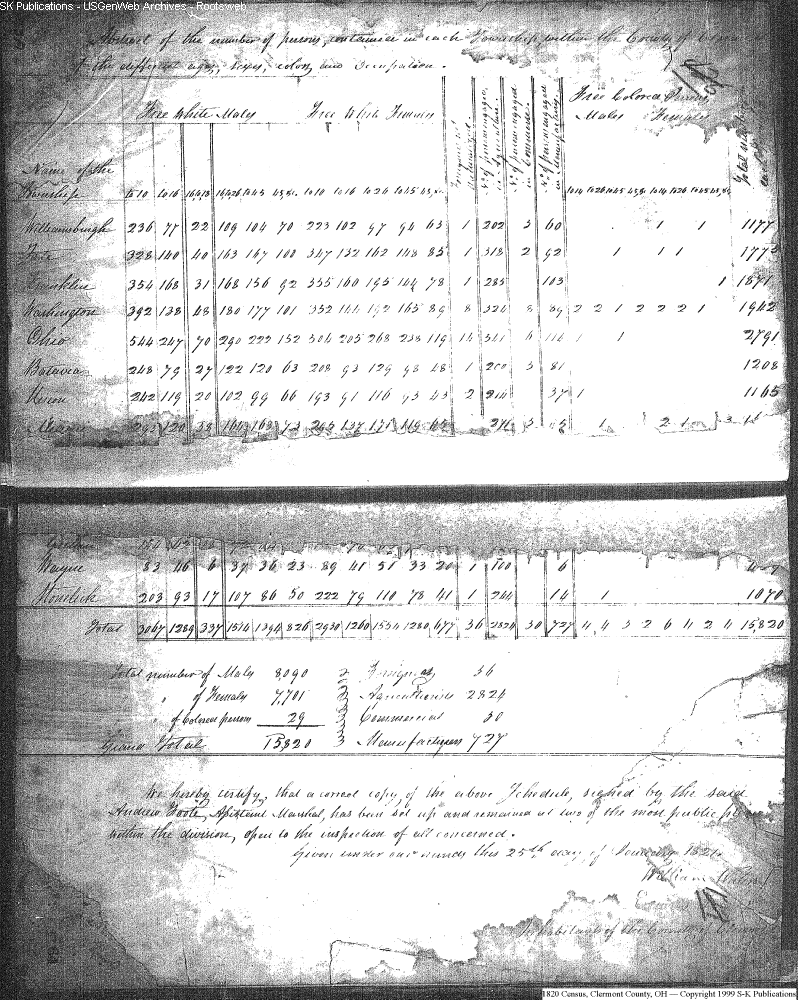 SK Publications - USGenWeb Archives - Rootsweb
Abstract of the number of persons, contained in each Township, within the County of
of the different ages, sexes, colors and Occupation.
Free White Males Free White Females
Free Colored Persons
Males Females
Name of the
Township
Foreigners not naturalized
No of persons engaged in Agriculture
No of persons engaged in Commerce
No of persons engaged in Manufactory
to 10 to 16 16 & 18 16 & 26 to 45 45 &c to 10 to 16 to 26 to 45 45 &c to 14 to 26 to 45 45 &c to 14 to 26 to 45 45 &c
Williamsburgh 236 77 22 109 104 70 223 102 97 94 63 1 202 3 60 1 1 1177
Tate 328 140 40 163 167 100 347 132 162 148 85 1 318 2 92 1 1 1
Franklin 354 168 31 168 156 92 335 160 195 164 78 1 285 103 1 1871
Washington 392 138 48 180 177 101 352 144 192 165 89 8 324 8 89 2 2 1 2 2 2 1 1942
Ohio 544 247 70 290 222 152 504 205 268 238 119 14 541 6 114 1 1 2791
Batavia 248 79 27 122 120 63 208 93 129 98 48 1 200 3 81 1208
Huron 242 119 20 102 99 66 193 91 116 93 43 2 214 37 1 1165
295 120 38 164 163 73 265 137 171 119 1 2 1
Wayne 83 46 6 37 36 23 89 41 51 33 20 1 100 6
203 93 17 107 86 50 222 79 110 78 41 1 244 14 1 1070
Total 3067 1289 337 1514 1394 826 2930 1260 1554 1280 677 36 2824 30 727 4 4 3 2 6 4 2 4 15,820
Total number of Males 8090 Foreigners 36
" of Females 7,701 Agriculturists 2824
" of Colored persons 29 Commercial 30
Grand Total 15820 Manufacturers 727
We hereby certify, that a correct copy, of the above Schedule, signed by the said
Andrew Foote, Assistant Marshal, has been set up and remained at two of the most public
within the division, open to the inspection of all concerned.
Given under our hands this 25th day of January 1821
William
Inhabitants of the County of
1820 Census, Clermont County, OH — Copyright 1999 S-K Publications